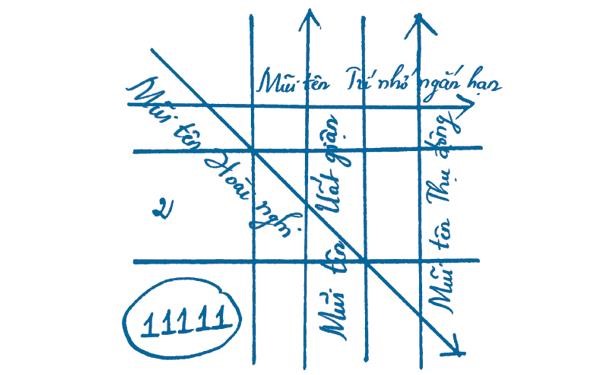 Mũi tên Trí nhớ ngắn hạn
Mũi tên Hoài nghi
Mũi tên Uất giận
Mũi tên Thụ động
2
11111